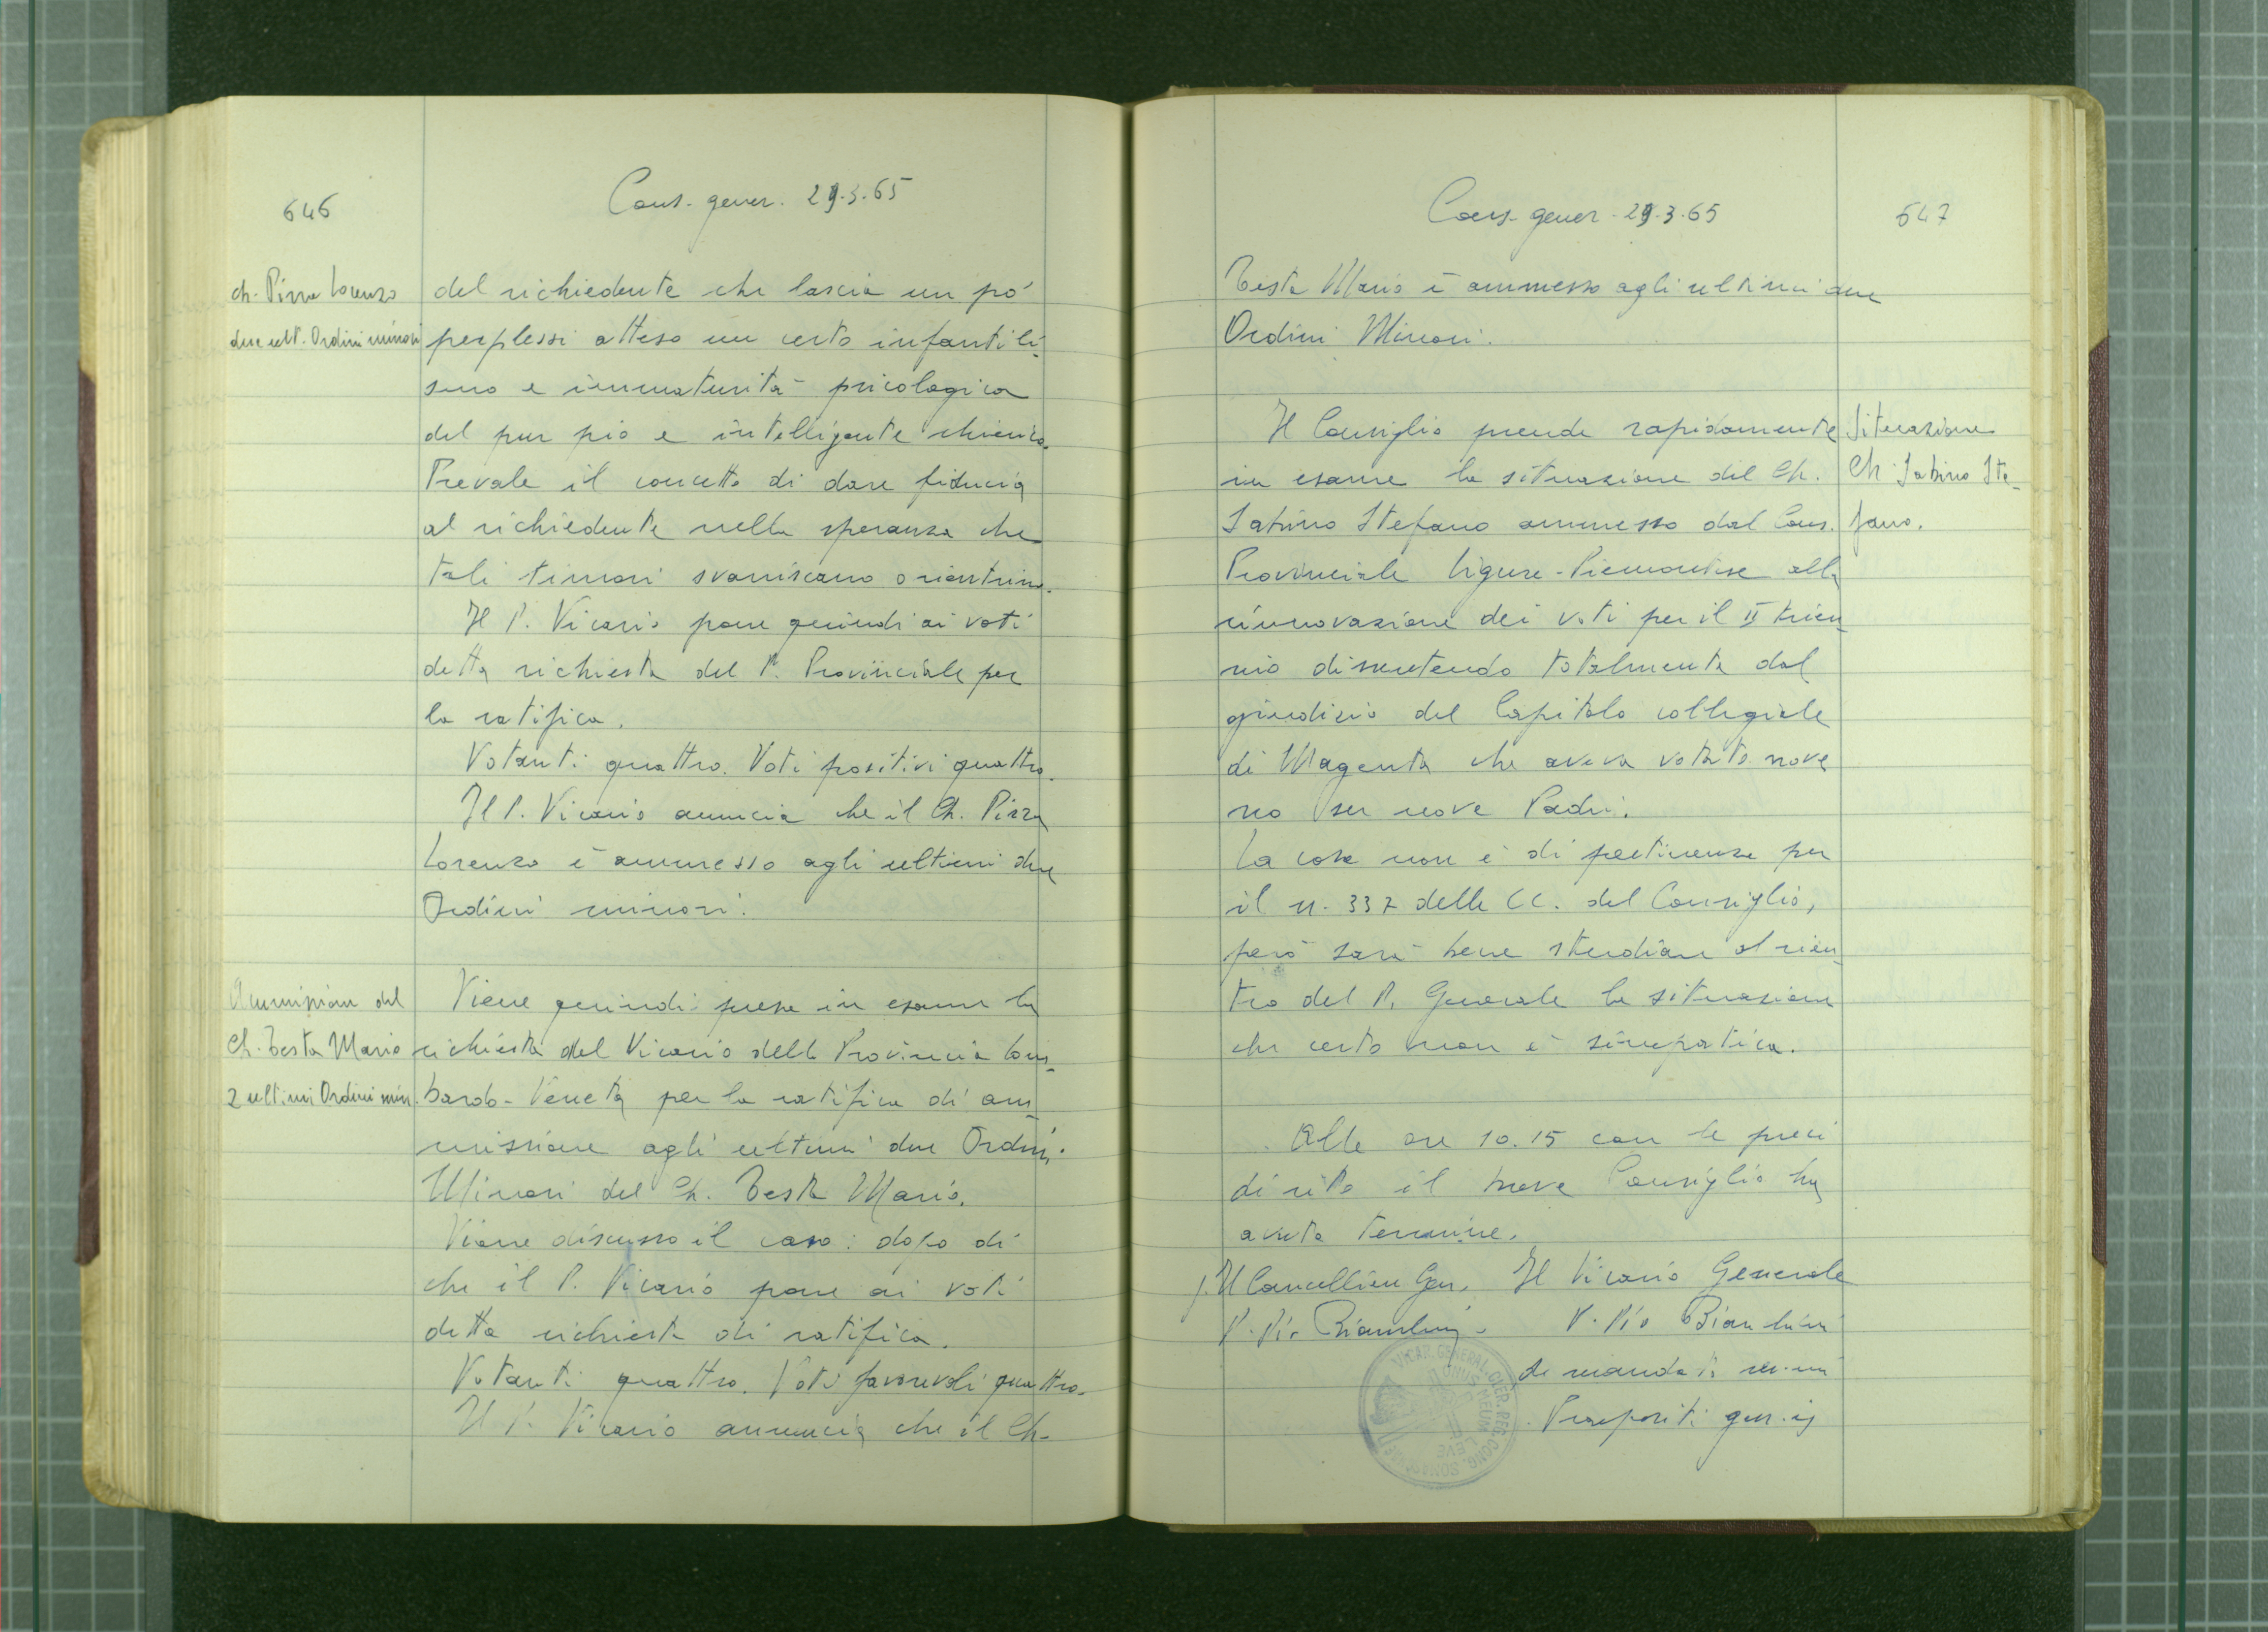 646
Cons. gener. 29.3.65
ch. Pizza Lorenzo
due ult. Ordini minori
del richiedente che lascia un pò
perplessi atteso un certo infantili-
smo e immaturità psicologica
del pur pio e intelligente chierico.
Prevale il concetto di dare fiducia
al richiedente nella speranza che
tali timori svaniscano o rientrino.
Il P. Vicario pone quindi ai voti
detta richiesta del P. Provinciale per
la ratifica.
Votanti quattro. Voti positivi quattro.
Il P. Vicario annuncia che il Ch. Pizza
Lorenzo è ammesso agli ultimi due
Ordini minori.
Ammissione del
Ch. Testa Mario
2 ultimi Ordini min.
Viene quindi presa in esame la
richiesta del Vicario della Provincia Lom-
bardo-Veneta per la ratifica di am-
missione agli ultimi due Ordini
Minori del Ch. Testa Mario.
Viene discusso il caso: dopo di
che il P. Vicario pone ai voti
detta richiesta di ratifica.
Votanti quattro. Voti favorevoli quattro.
Il P. Vicario annuncia che il Ch.
Cons. gener. 29.3.65
647
Testa Mario è ammesso agli ultimi due
Ordini Minori.
Il Consiglio prende rapidamente
in esame la situazione del Ch.
Sabino Stefano ammesso dal Cons.
Provinciale Ligure-Piemontese alla
rinnovazione dei voti per il II trien-
nio dissentendo totalmente dal
giudizio del Capitolo collegiale
di Magenta che aveva votato nove
no su nove Padri.
La cosa non è di pertinenza per
il n. 337 delle CC. del Consiglio,
però sarà bene studiare al rien-
tro del P. Generale la situazione
che certo non è simpatica.
Situazione
Ch. Sabino Ste-
fano.
Alle ore 10.15 con le preci
di rito il breve Consiglio ha
avuto termine.
f. Il Cancelliere Gen. Il Vicario Generale
P. Pio Bianchini P. Pio Bianchini
de mandato rev.mi
Praepositi gen.is
VICAR. GENERAL. CLER. REG. CONG. SOMASCHAE
ONUS MEUM LEVE